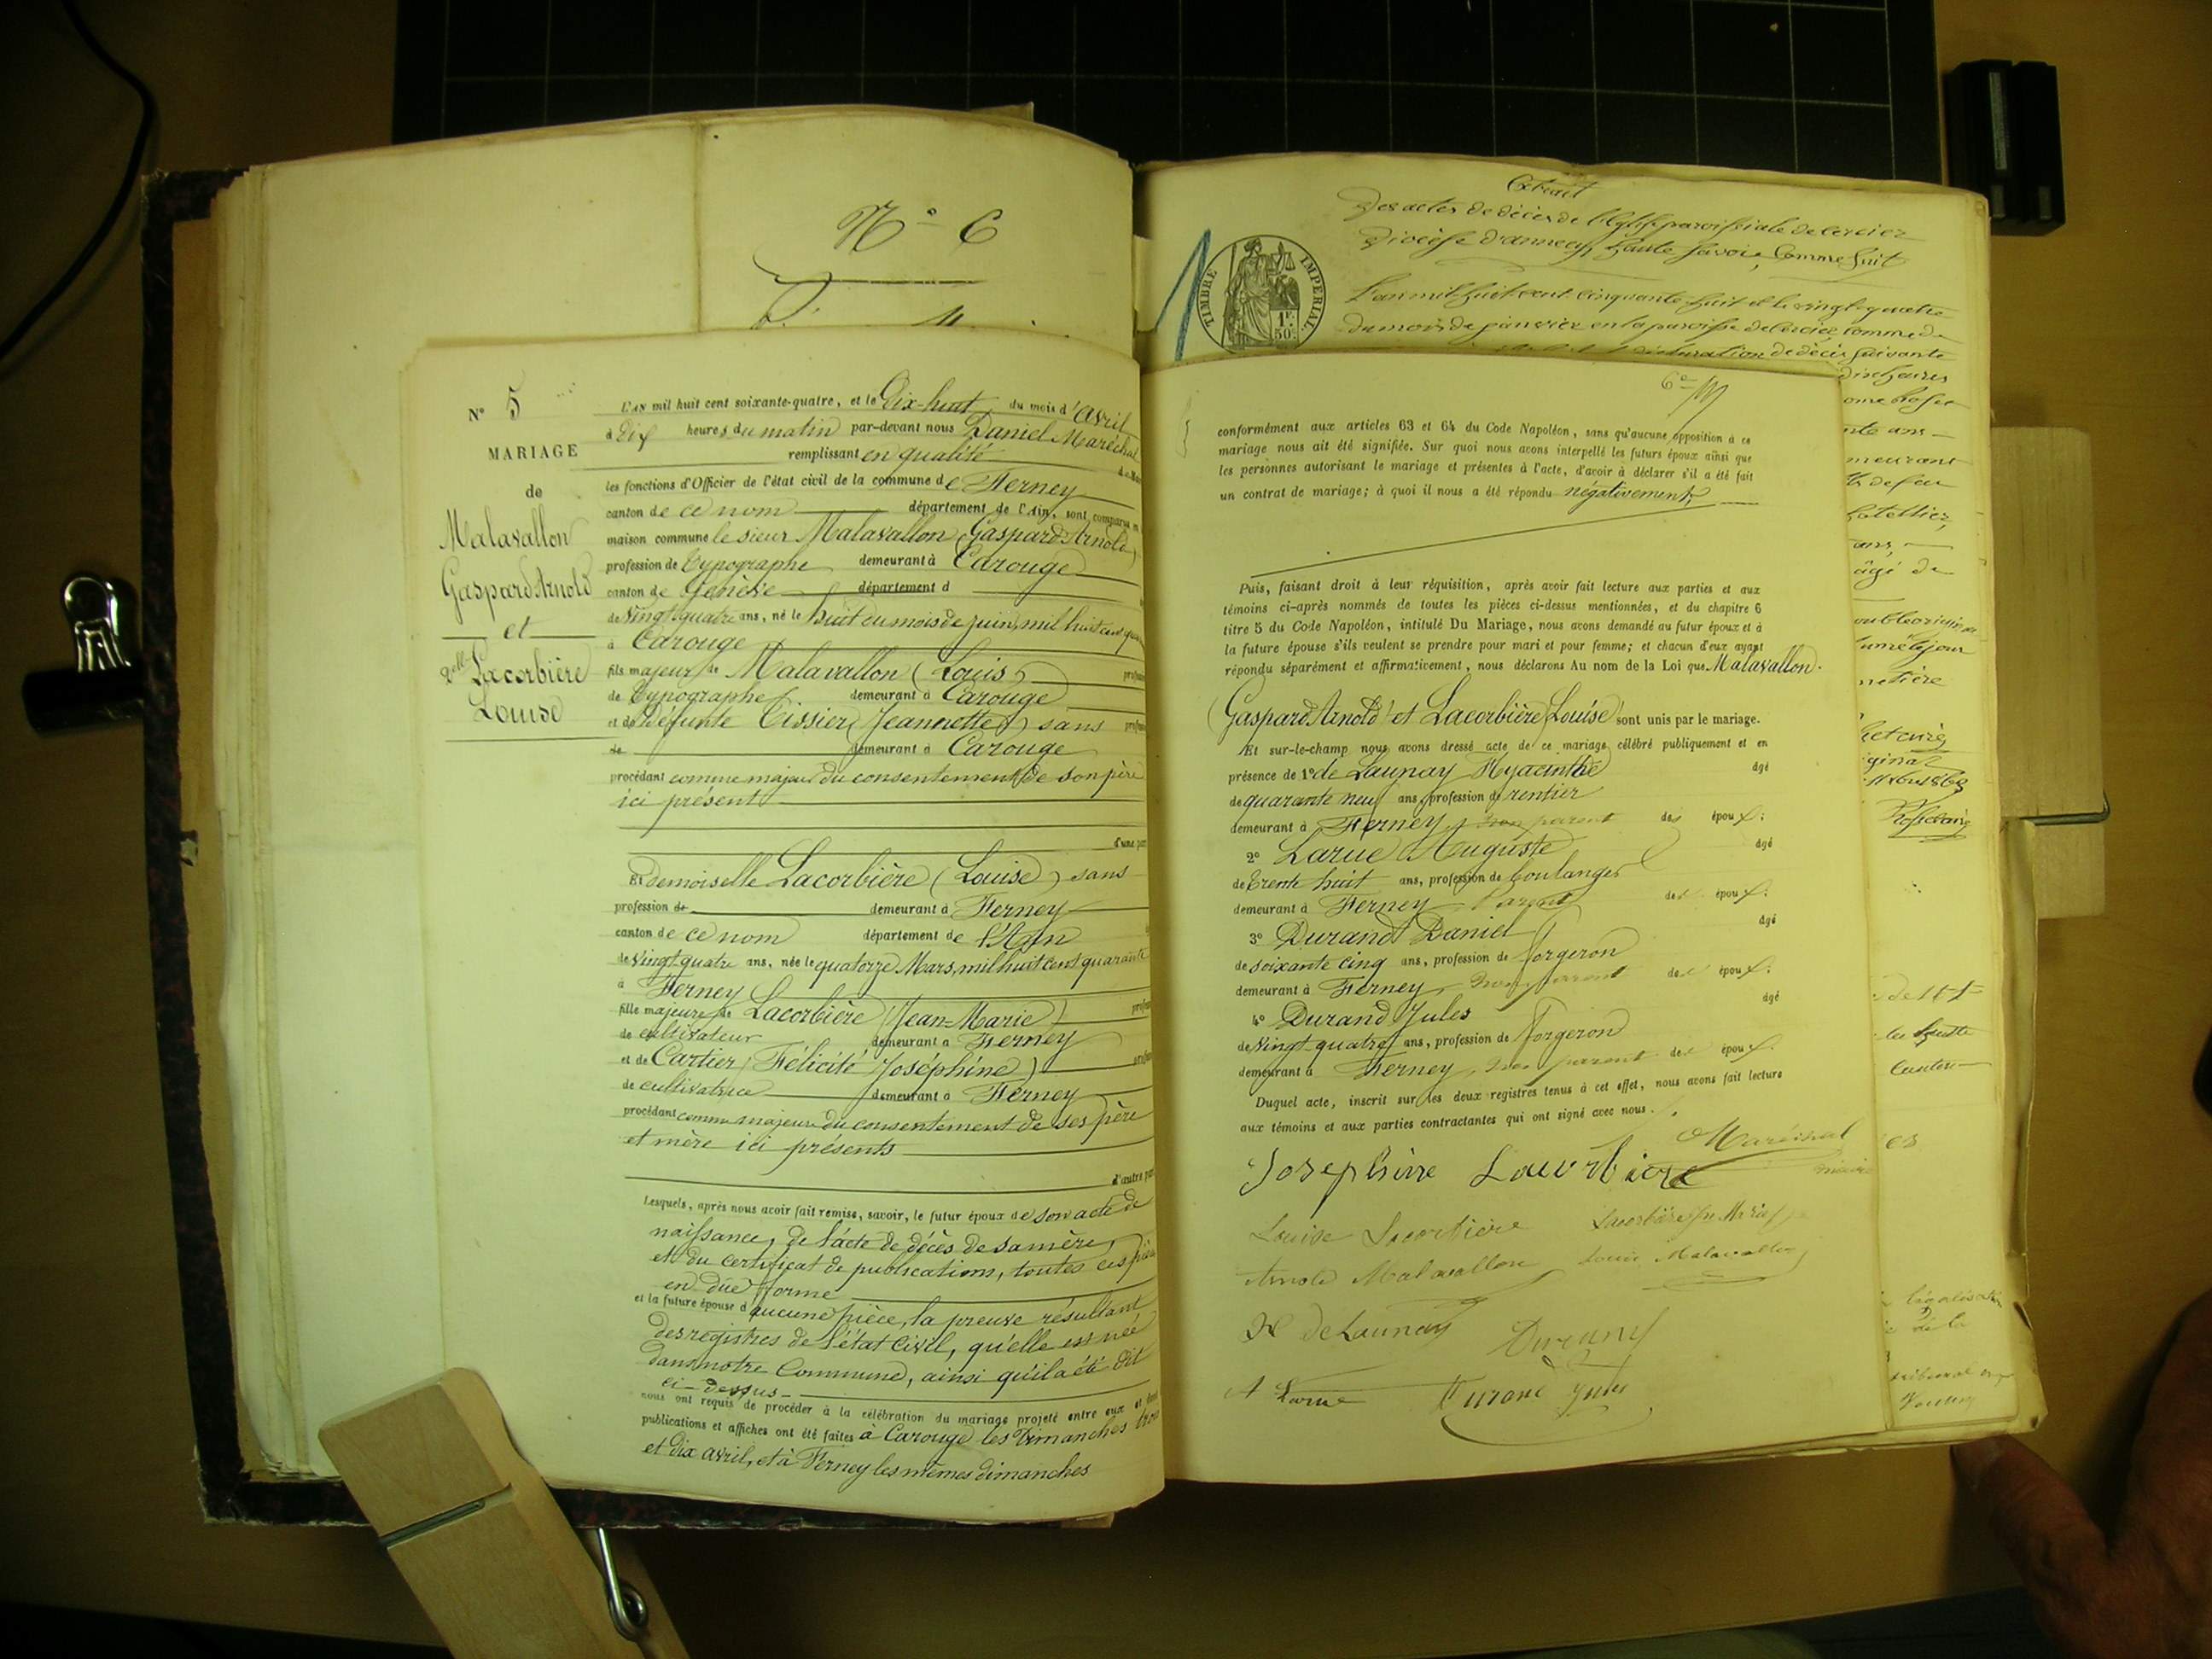 N° 6
N° 5
MARIAGE
de
Malavallon
Gaspard Arnold
et
Delle Lacorbière
Louise
L'AN mil huit cent soixante-quatre, et le Dix-huit du mois d'Avril
à Dix heures du matin par-devant nous Daniel Maréchal
remplissant en qualité
les fonctions d'Officier de l'état civil de la commune de Ferney
canton de ce nom département de l'Ain, sont comparus en
maison commune le sieur Malavallon (Gaspard Arnold)
profession de Typographe demeurant à Carouge
canton de Genève département d
de Vingt-quatre ans, né le huit du mois de juin, mil huit cent
à Carouge
fils majeur de Malavallon (Louis)
de Typographe demeurant à Carouge
et de Défunte Tissier (Jeannette) sans
de demeurant à Carouge
procédant comme majeur du consentement de son père
ici présent
d'une part
Et demoiselle Lacorbière (Louise) sans
profession de demeurant à Ferney
canton de ce nom département de l'Ain
de Vingt-quatre ans, née le quatorze Mars, mil huit cent quarante
à Ferney
fille majeure de Lacorbière (Jean-Marie)
de cultivateur demeurant à Ferney
et de Cartier (Félicité Joséphine)
de cultivatrice demeurant à Ferney
procédant comme majeure du consentement de ses père
et mère ici présents
d'autre part
Lesquels, après nous avoir fait remise, savoir, le futur époux de son acte de
naissance, de l'acte de décès de sa mère,
et du certificat de publications, toutes ces pièces
en due forme
et la future épouse d'aucune pièce, la preuve résultant
des registres de l'état civil, qu'elle est née
dans notre Commune, ainsi qu'il a été dit
ci-dessus
nous ont requis de procéder à la célébration du mariage projeté entre eux et dont
publications et affiches ont été faites à Carouge les Dimanches trois
et dix avril, et à Ferney les mêmes dimanches
Extrait
Des actes de décès de l'Eglise paroissiale de Cercier
Diocèse d'annecy, haute Savoie, Comme Suit
TIMBRE IMPERIAL
1F. 50c.
L'an mil huit cent cinquante huit et le vingt-quatre
du mois de janvier en la paroisse de Cercier, Comme de
déclaration de décès suivante
6e
conformément aux articles 63 et 64 du Code Napoléon, sans qu'aucune opposition à ce
mariage nous ait été signifiée. Sur quoi nous avons interpellé les futurs époux ainsi que
les personnes autorisant le mariage et présentes à l'acte, d'avoir à déclarer s'il a été fait
un contrat de mariage; à quoi il nous a été répondu négativement,
Puis, faisant droit à leur réquisition, après avoir fait lecture aux parties et aux
témoins ci-après nommés de toutes les pièces ci-dessus mentionnées, et du chapitre 6
titre 5 du Code Napoléon, intitulé Du Mariage, nous avons demandé au futur époux et à
la future épouse s'ils veulent se prendre pour mari et pour femme; et chacun d'eux ayant
répondu séparément et affirmativement, nous déclarons Au nom de la Loi que Malavallon
(Gaspard Arnold) et Lacorbière (Louise) sont unis par le mariage.
Et sur-le-champ nous avons dressé acte de ce mariage célébré publiquement et en
présence de 1° de Launay Hyacinthe âgé
de quarante neuf ans, profession de rentier
demeurant à Ferney, non parent des époux:
2° Larue Auguste âgé
de trente huit ans, profession de boulanger
demeurant à Ferney, Parent de époux:
3° Durand Daniel âgé
de soixante cinq ans, profession de forgeron
demeurant à Ferney, Non parent de époux:
4° Durand Jules âgé
de Vingt-quatre ans, profession de Forgeron
demeurant à Ferney, Non parent de époux.
Duquel acte, inscrit sur les deux registres tenus à cet effet, nous avons fait lecture
aux témoins et aux parties contractantes qui ont signé avec nous.
Maréchal
maire
Josephine Lacorbiere
Louise Lacorbière Lacorbière Jn Marie
Arnold Malavallon Louis Malavallon
H de Launay Durand
A Larue Durand Jules